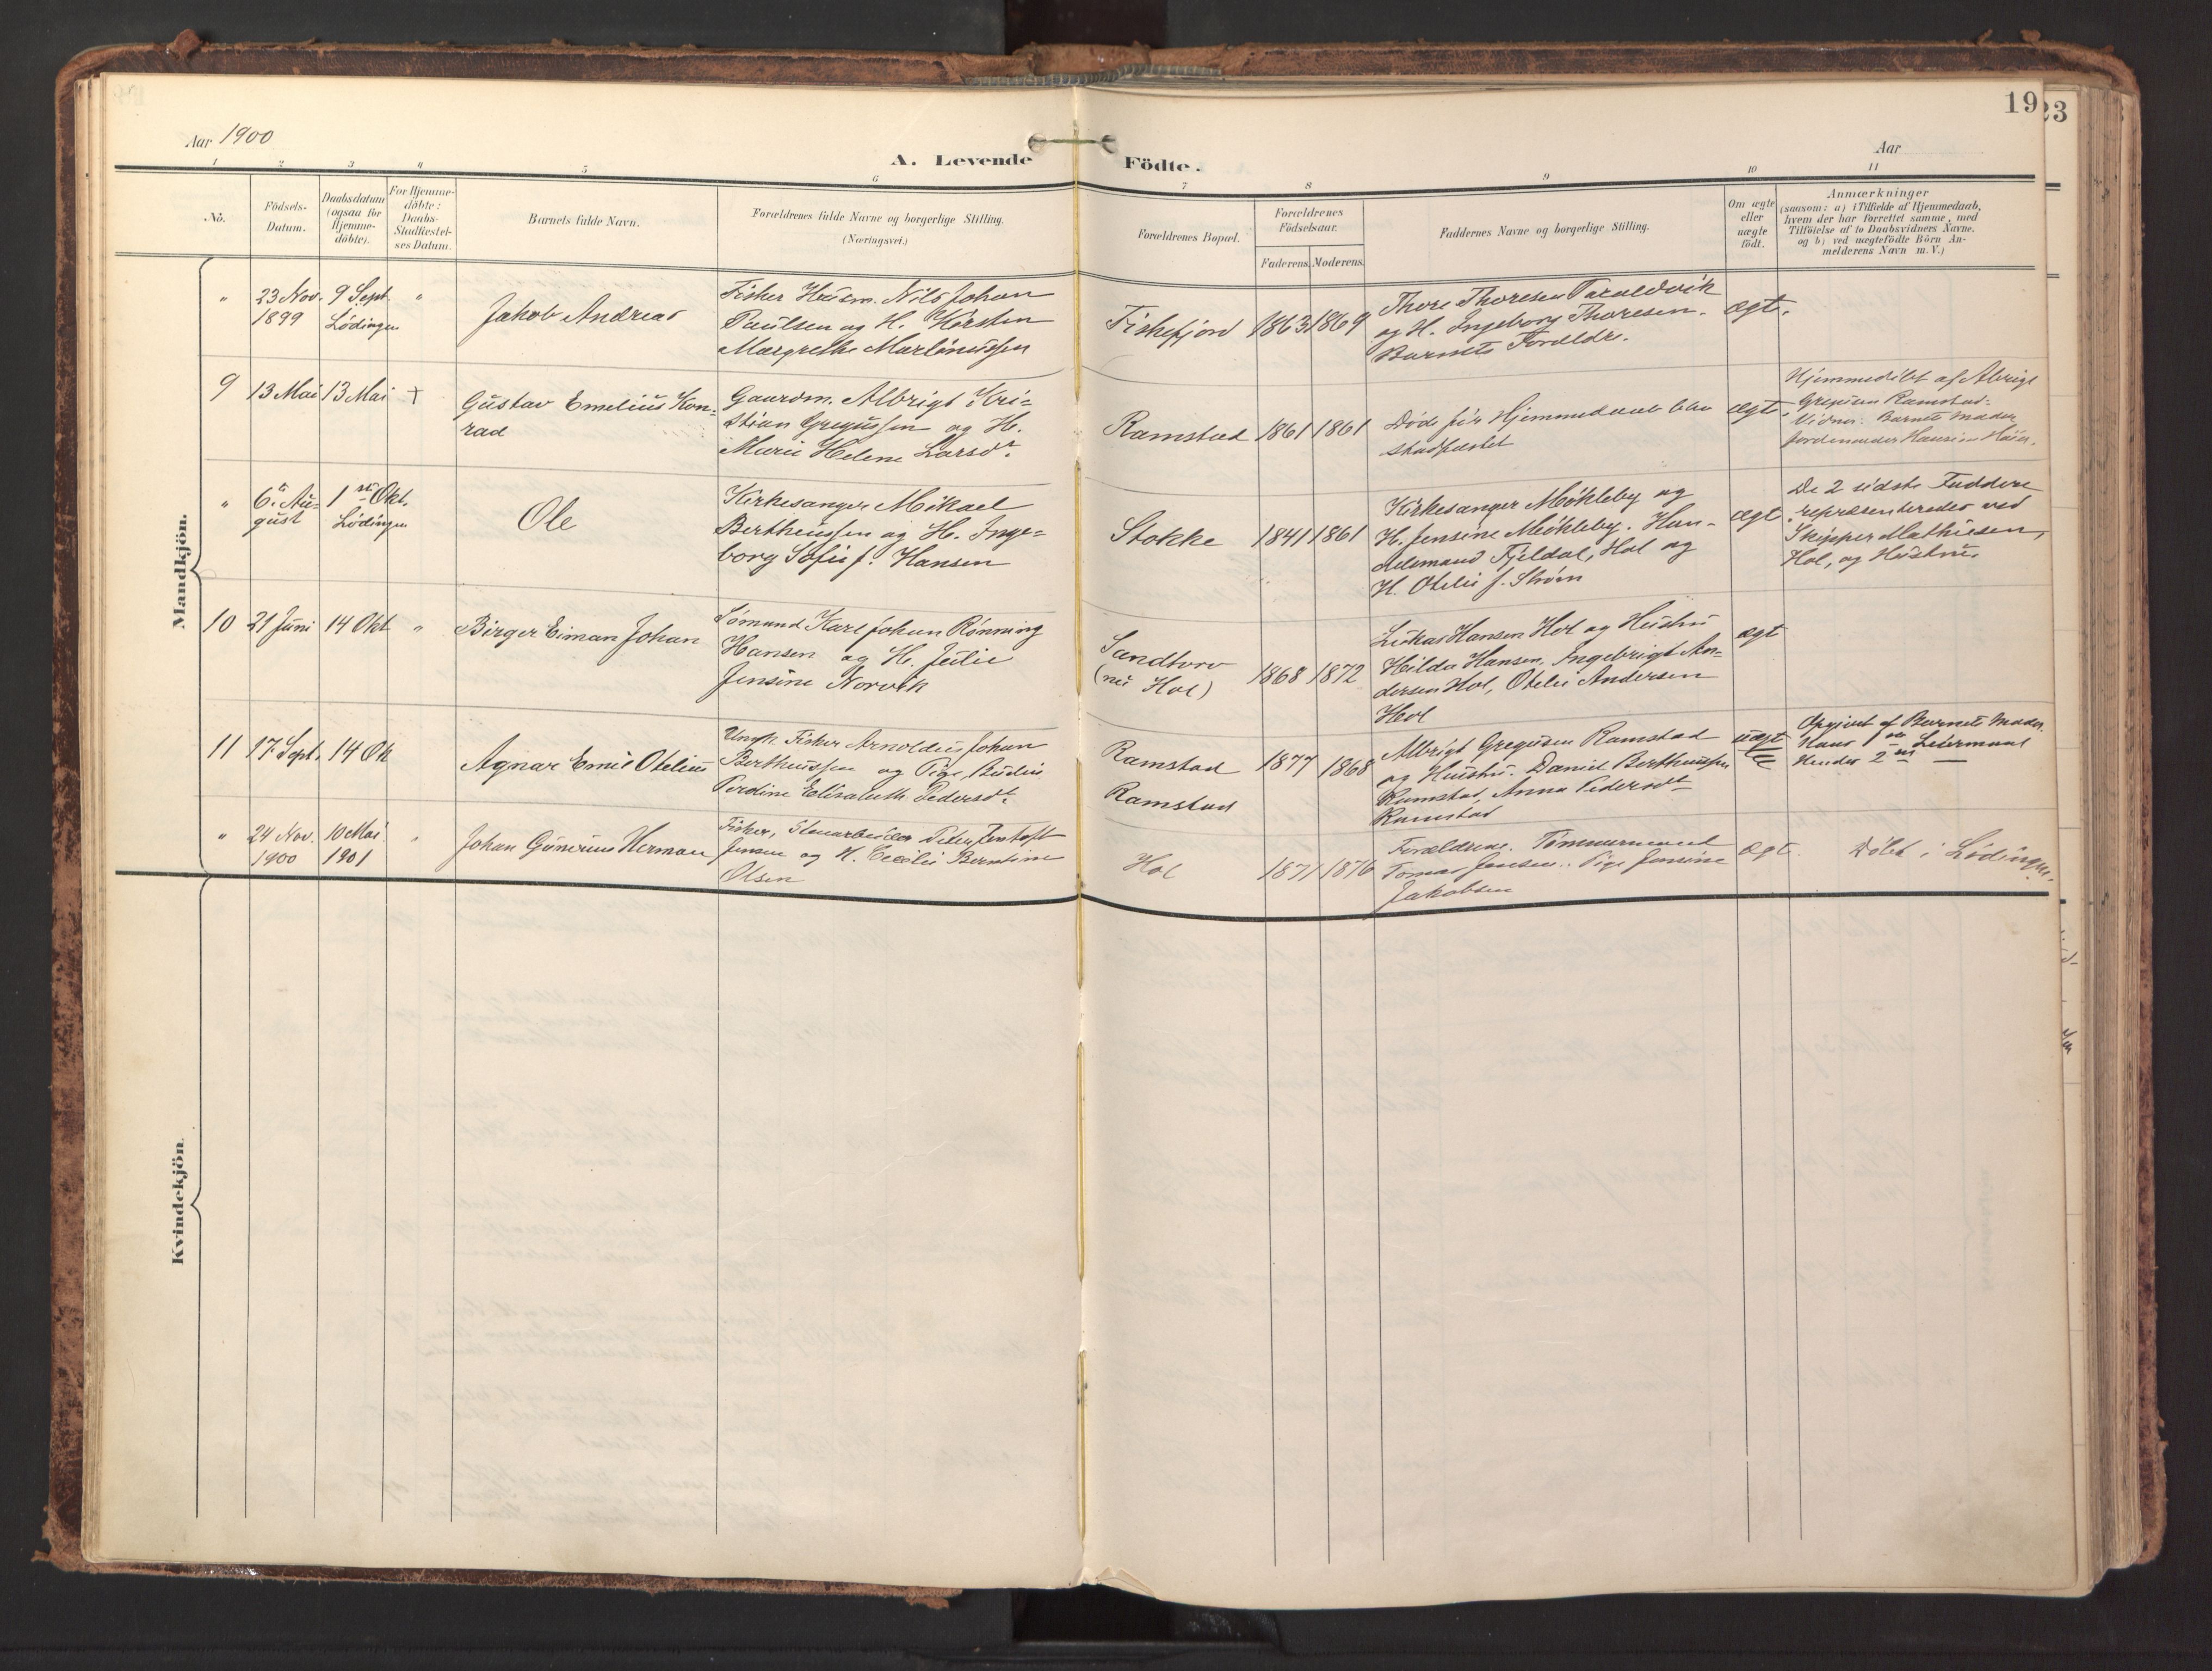 Aar 1900
A. Levende Födte.
Aar
19
23
1 2 3 4 5 6 7 8 9 10 11
No.
Födsels-
Datum.
Daabsdatum
(ogsaa for
Hjemme-
döbte).
For Hjemme-
döbte:
Daabs-
Stadfæstel-
ses Datum.
Barnets fulde Navn.
Forældrenes fulde Navne og borgerlige Stilling.
(Næringsvei.)
Forældrenes Bopæl.
Forældrenes
Födselsaar.
Faderens. Moderens.
Faddernes Navne og borgerlige Stilling.
Om ægte
eller
uægte
födt.
Anmærkninger
(saasom: a) i Tilfælde af Hjemmedaab,
hvem der har forrettet samme, med
Tilföielse af to Daabsvidners Navne,
og b) ved uægtefödte Börn An-
melderens Navn m.V.)
Mandkjön.
" 23 Nov. 1899
9 Sept. Lödingen
"
Jakob Andreas
Fisker Husm. Nils Johan
Paulsen og H. Kirsten
Margrethe Martinussen
Fiskefjord
1863 1869
Thore Thoresen
og H. Ingeborg Thoresen.
Barnets Foreldre.
ægt.
9
13 Mai
13 Mai
+
Gustav Emelius Kon-
rad
Gaardm. Albrigt Kri-
stian Gregussen og H.
Marie Helene Larsdt.
Ramstad
1861 1861
Døde før Hjemmedaab blev
stadfæstet
ægt.
Hjemmedöbt af Albrigt
Gregusen Ramstad.
Vidner: Barnets Moder
Jordemoder
"
6te Au-
gust
1ste Okt.
Lödingen
Ole
Kirkesanger Mikael
Bertheussen og H. Inge-
borg Sofie f. Hansen
Stokke
1841 1861
Kirkesanger Møkleby og
H. Jensine Møkleby. Han-
delsmand Fjeldal, Hol og
H. Otelie f. Strøm
ægt
De 2 sidste Faddere
repræsenteredes ved
Skipper Mathiesen,
Hol, og Hustru.
10
21 Juni
14 Okt
"
Birger Eiman Johan
Sømand Karl Johan Rønning
Hansen og H. Julie
Jensine Norvik
Sandtorv
(nu Hol)
1868 1872
Lukas Hansen Hol og Hustru
Hilda Hansen, Ingebrigt An-
dersen Hol, Otelie Andersen
Hol
ægt
11
17 Sept.
14 Ok
Agnar Emil Otelius
Ungk. Fisker Arnoldus Johan
Bertheussen og Pige
Perdine Elisabeth Pedersdt.
Ramstad
Ramstad
1877 1868
Albrigt Gregusen Ramstad
og Hustru. Daniel Bertheussen
Ramstad, Anna Pedersdt
Ramstad
uægt
Opgivet af Barnets Moder.
Hans 1ste Leiermaal
Hendes 2det —
"
24 Nov.
1900
10 Mai
1901
"
Johan Gunerius Herman
Fisker, Stenarbeider Peter
Jensen og H. Cecilie Berntine
Olsen
Hol
1871 1876
Forældrene. Tømmermand
Tomas Jensen. Pige Jensine
Jakobsen
ægt.
Døbt i Lödingen.
Kvindekjön.